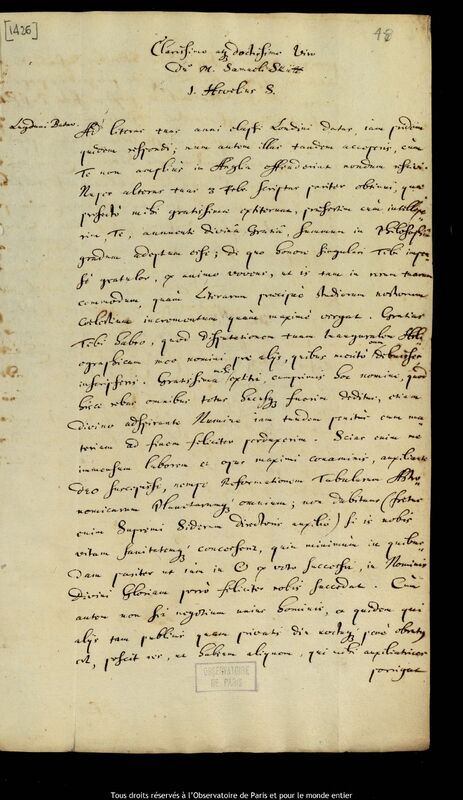 [1426]
48
Clarissimo atq; doctissimo Viro
Dno. M. Samueli
J. Hevelius S.
Lugduni Batav.
Ad literas tuas anni elapsi Londini datas, jam pridem
quidem respondi; num autem illas tandem acceperis, cum
Te non amplius in Anglia offenderint nondum
Nuper alteras tuas 3 Feb. scriptas pariter obtinui, quae
profecto mihi gratissimae extiterunt, praesertim cum
Te, annuente divina Gratia, summum in Philosophia
gradum adeptum esse; de quo honore singulari Tibi
gratulor, ex animo vovens, ut is tam in rerum tuarum
commodum, quam Literarum praecipue studiorum nostrorum
Coelestium incrementum quam maxime vergat. Gratias
Tibi habeo, quod disputationem tuam inauguralem
ographicam meo nomini prae alijs, quibus merito
inscripseris. Gratissima mihi cumprimis hoc nomine, quod
hisce rebus omnibus totus hucusq; fuerim deditus, etiam
divino adspirante Numine iam tandem penitus eam ma-
teriam ad finem feliciter perduxerim. Scias enim me
immensum laborem et opus maximi conaminis, auxiliante
Deo suscepisse, nempe Reformationem Tabularum Astro-
nomicarum Planetarumq; omnium; non dubitans (fretus
enim Supremi Siderum directoris auxilio) si is nobis
vitam sanitatemq; concesserit, quin minimum in quibus-
dam pariter ut iam in ☉ ex voto successit, in Nominis
Divini Gloriam porro feliciter nobis succedat. Cum
autem non sit negotium unius hominis, et quidem qui
alijs tam publicis quam privatis die noctuq; pene obrutus
est, poscit res, ut habeam aliquem, qui mihi auxiliatrices
porrigat
OBSERVATOIRE
DE PARIS
Tous droits réservés à l'Observatoire de Paris et pour le monde entier